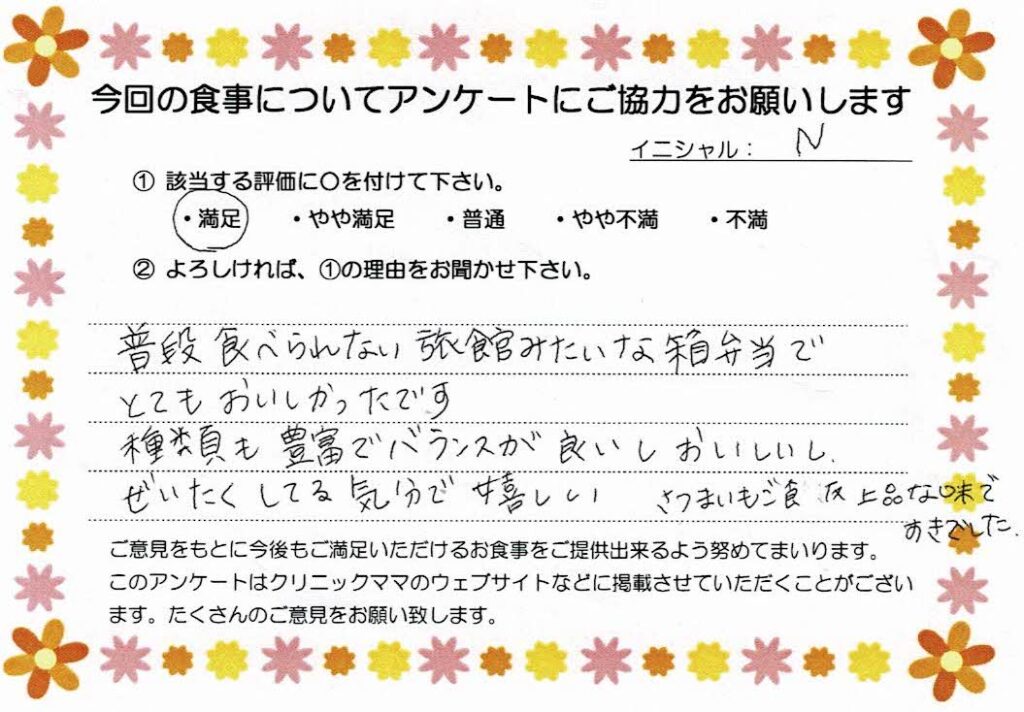 今回の食事についてアンケートにご協力をお願いします
イニシャル： N
① 該当する評価に〇を付けて下さい。
・満足 ・やや満足 ・普通 ・やや不満 ・不満
② よろしければ、①の理由をお聞かせ下さい。
普段食べられない旅館みたいな箱弁当で
とてもおいしかったです
種類も豊富でバランスが良いしおいしいし、
ぜいたくしてる気分で嬉しい さつまいもご飯 上品な味で
すきでした。
ご意見をもとに今後もご満足いただけるお食事をご提供出来るよう努めてまいります。
このアンケートはクリニックママのウェブサイトなどに掲載させていただくことがござい
ます。たくさんのご意見をお願い致します。